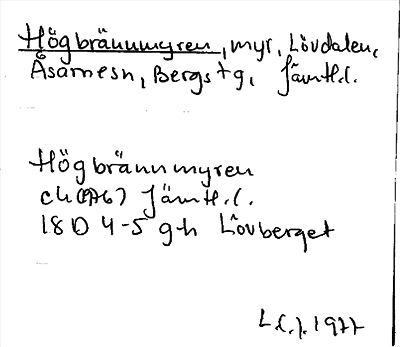 Högbrännmyren, myr, Lövdalen,
Åsarnesn, Bergs tg, Jämtl.l.
Högbrännmyren
ch (1976) Jämtl.l.
18D 4-5 gh Lövberget
L.L.J. 1977